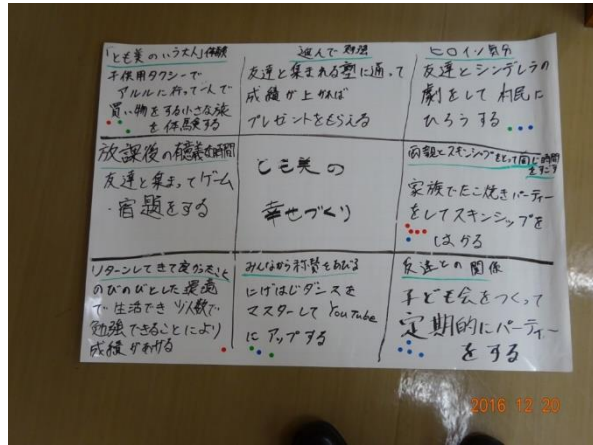 「とも美のいう大人」体験
子供用タクシーで
アルルに行って一人で
買い物をする小さな旅
を体験する
進んで勉強
友達と集まれる塾に通って
成績が上がれば
プレゼントをもらえる
ヒロイン気分
友達とシンデレラの
劇をして村民に
ひろうする
放課後の有意義な時間
友達と集まってゲーム
・宿題をする
とも美の
幸せづくり
両親とスキンシップをとって同じ時間
をすごす
家族でたこ焼きパーティー
をしてスキンシップを
はかる
リターンしてきて良かったこと
のびのびとした環境
で生活でき少人数で
勉強できることにより
成績があがる
みんなから称賛をあびる
にげはじダンスを
マスターしてYouTube
にアップする
友達との関係
子ども会をつくって
定期的にパーティー
をする
2016 12 20